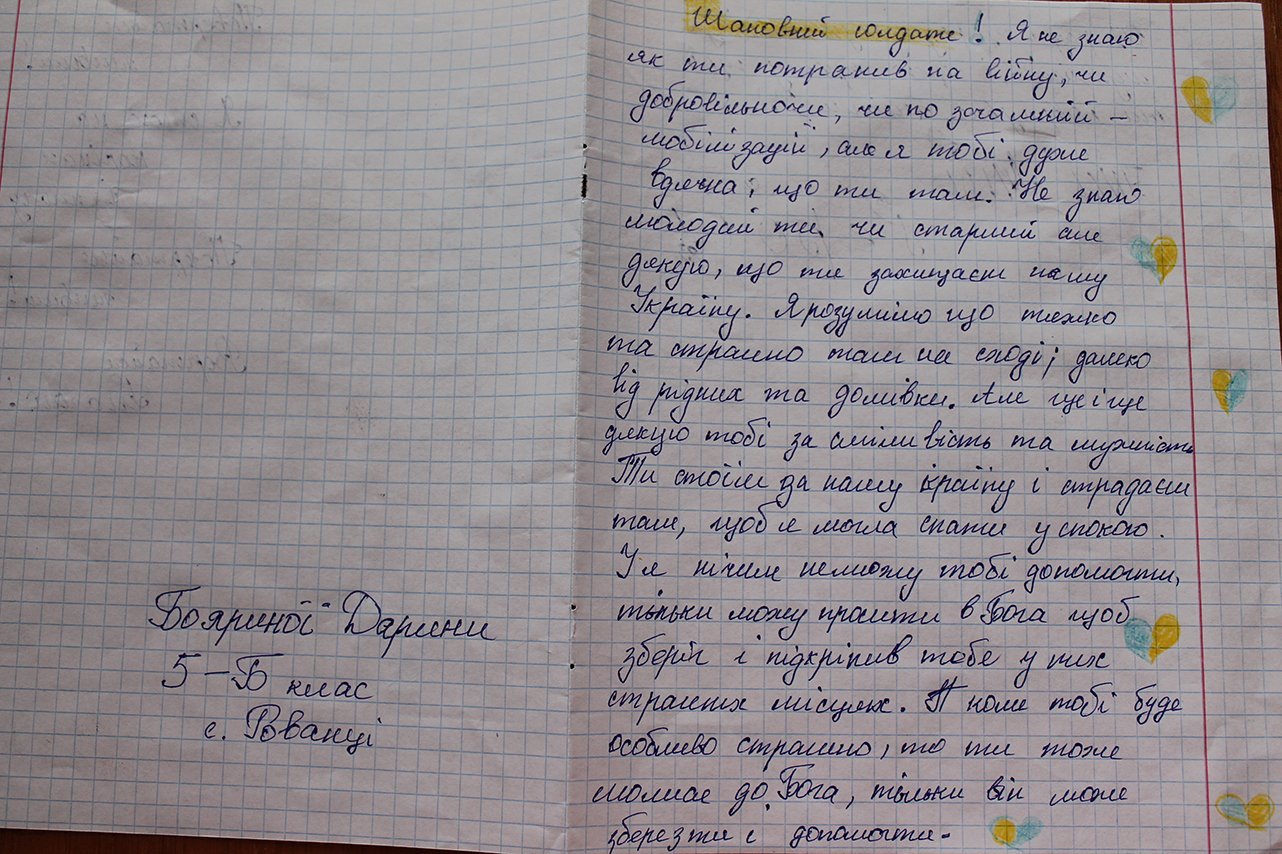 Бояриної Дарини
5-Б клас
с. Рованці
Шановний солдате! Я не знаю
як ти потрапив на війну, чи
добровільно чи, чи по загальній -
мобілізації, але я тобі дуже
вдячна, що ти там. Не знаю
молодий ти чи старший але
дякую, що ти захищаєш нашу
Україну. Я розумію що тяжко
та страшно там на сході; далеко
від рідних та домівки. Але ще і ще
дякую тобі за сміливість та мужність
Ти стоїш за нашу країну і страдаєш
там, щоб я могла спати у спокою.
У я нічим неможу тобі допомогти,
тільки можу просити в Бога щоб
зберіг і підкріпив тебе у тих
страшних місцях. П коли тобі буде
особливо страшно, то ти тоже
молися до Бога, тільки він може
зберегти і допомогти.